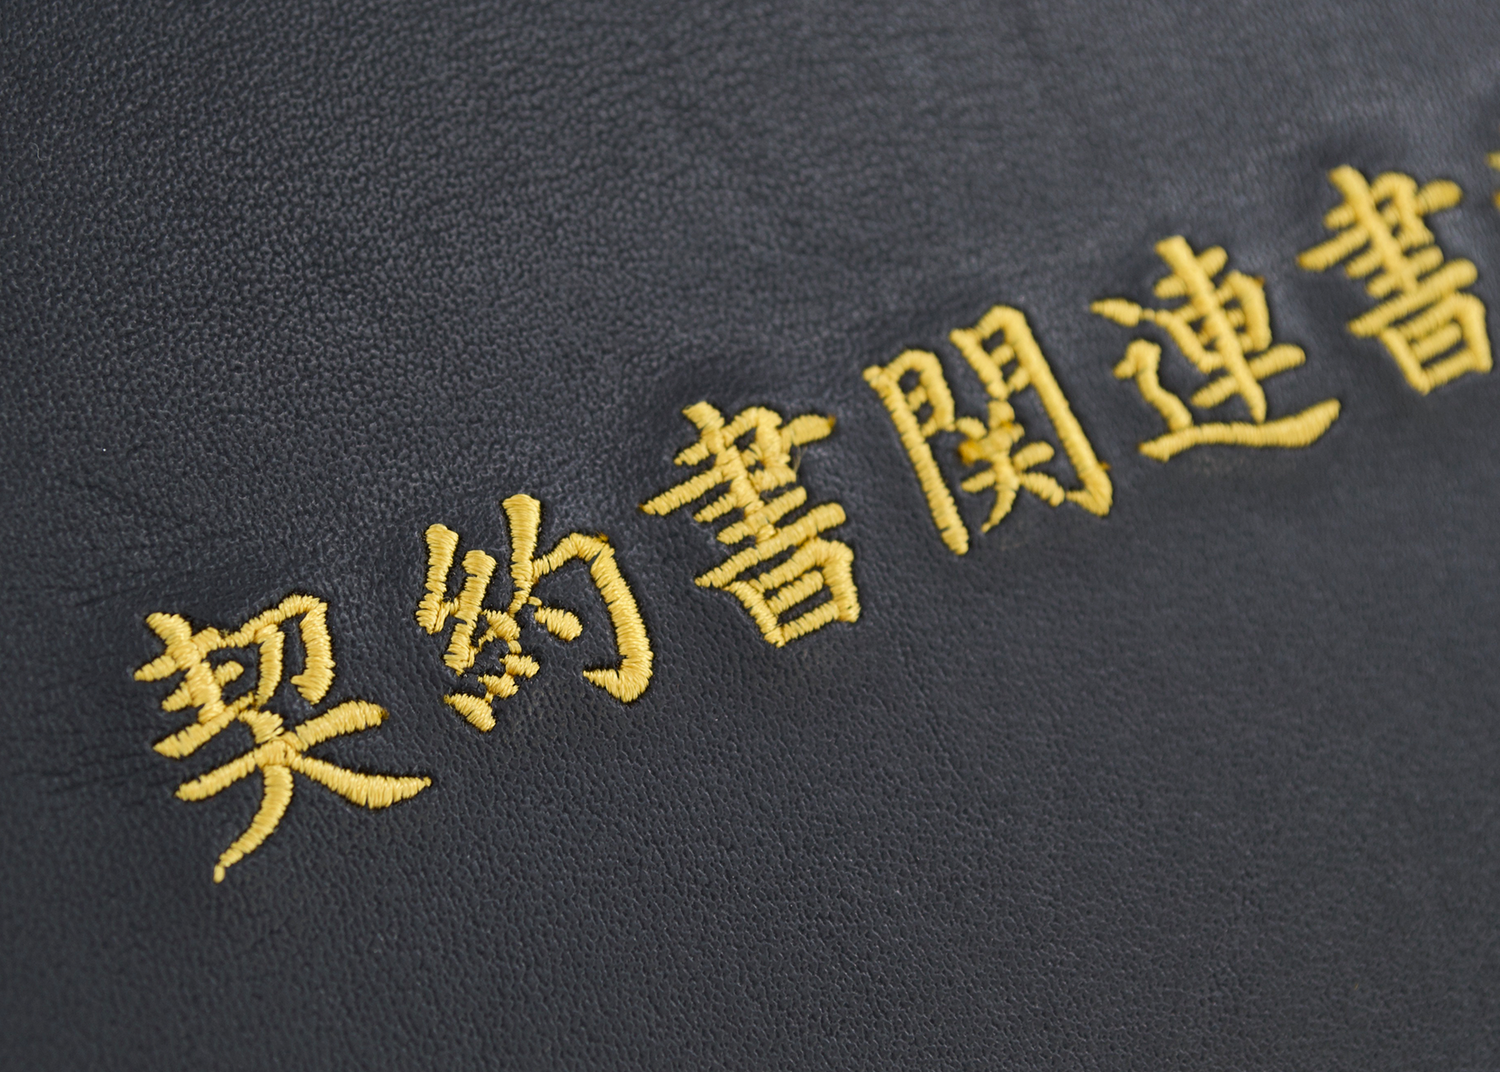 契約書関連書